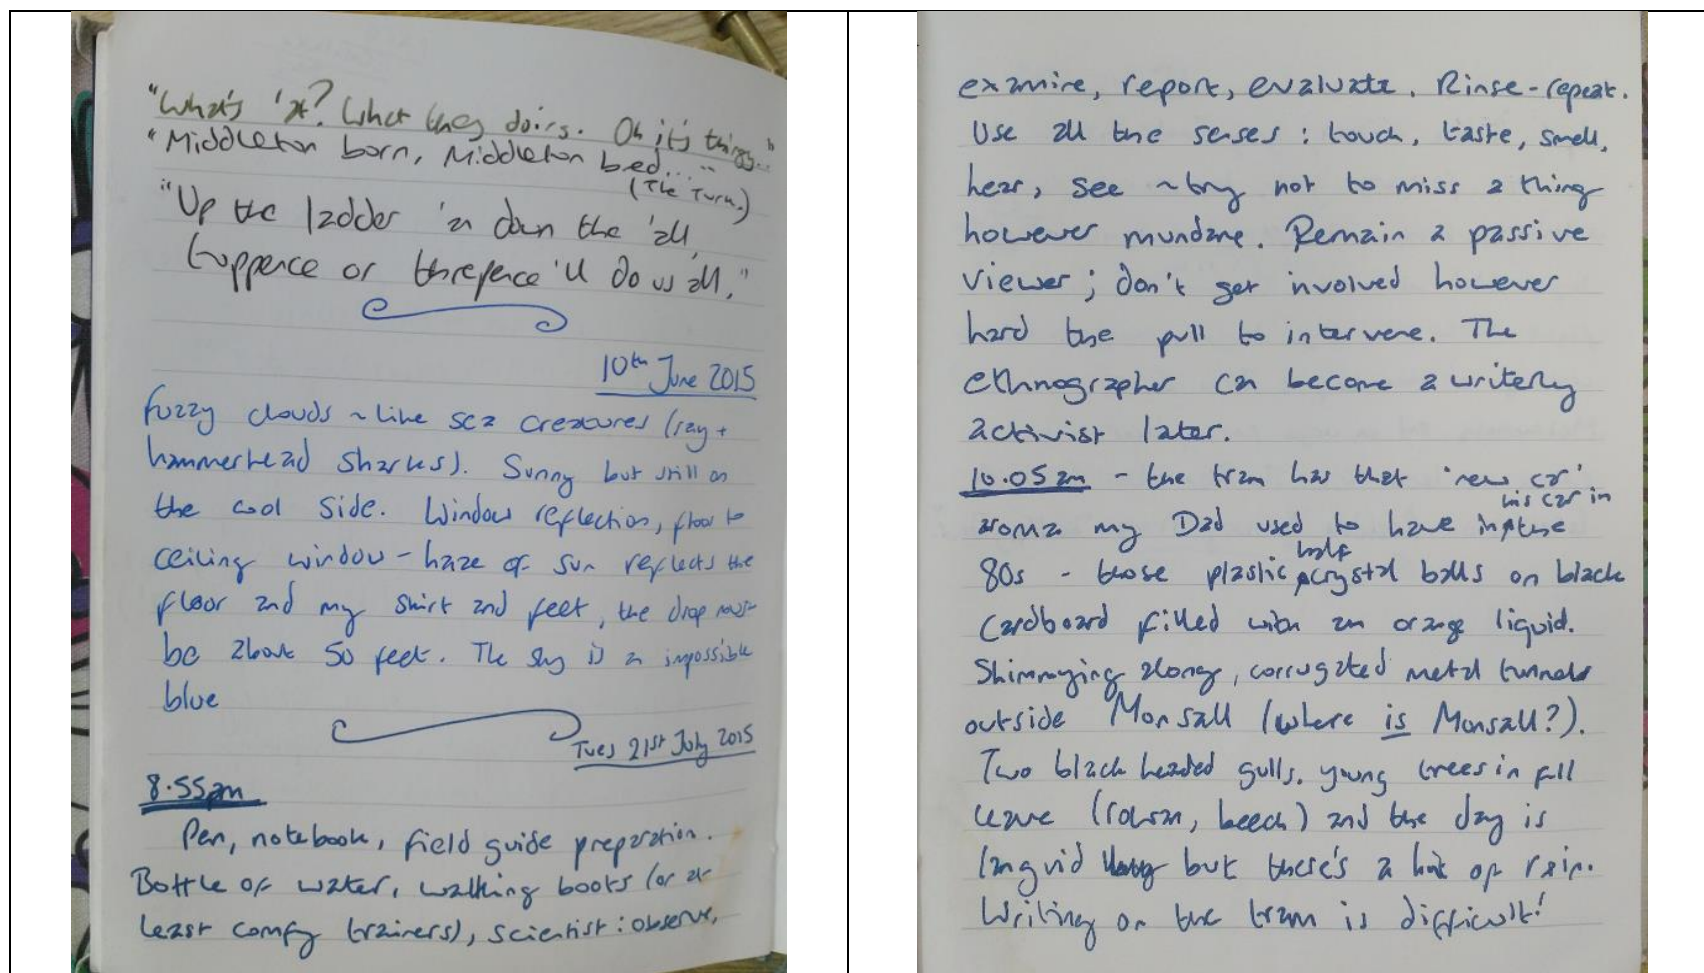 "What's 'at? What they doing. Oh it's things..."
"Middleton born, Middleton bed...."
(The Turn.)
"Up the ladder 'n down the 'all,
tuppence or threpence 'll do us all."
10th June 2015
fuzzy clouds ~ like sea creatures (ray +
hammerhead sharks). Sunny but still on
the cool side. Window reflection, floor to
ceiling window - haze of sun reflects the
floor and my shirt and feet, the drop must
be about 50 feet. The sky is an impossible
blue
Tues 21st July 2015
8.55am
Pen, notebook, field guide preparation.
Bottle of water, walking boots (or at
least comfy trainers), scientist: observe,
examine, report, evaluate. Rinse-repeat.
Use all the senses: touch, taste, smell,
hear, see ~ try not to miss a thing
however mundane. Remain a passive
viewer; don't get involved however
hard the pull to intervene. The
ethnographer can become a writerly
activist later.
10.05am - the tram has that 'new car'
his car in
aroma my Dad used to have in the
half
80s - those plastic crystal balls on black
cardboard filled with an orange liquid.
Shimmying along, corrugated metal tunnels
outside Monsall (where is Monsall?).
Two black headed gulls. young trees in full
leave (rowan, beech) and the day is
languid but there's a hint of rain.
Writing on the tram is difficult!